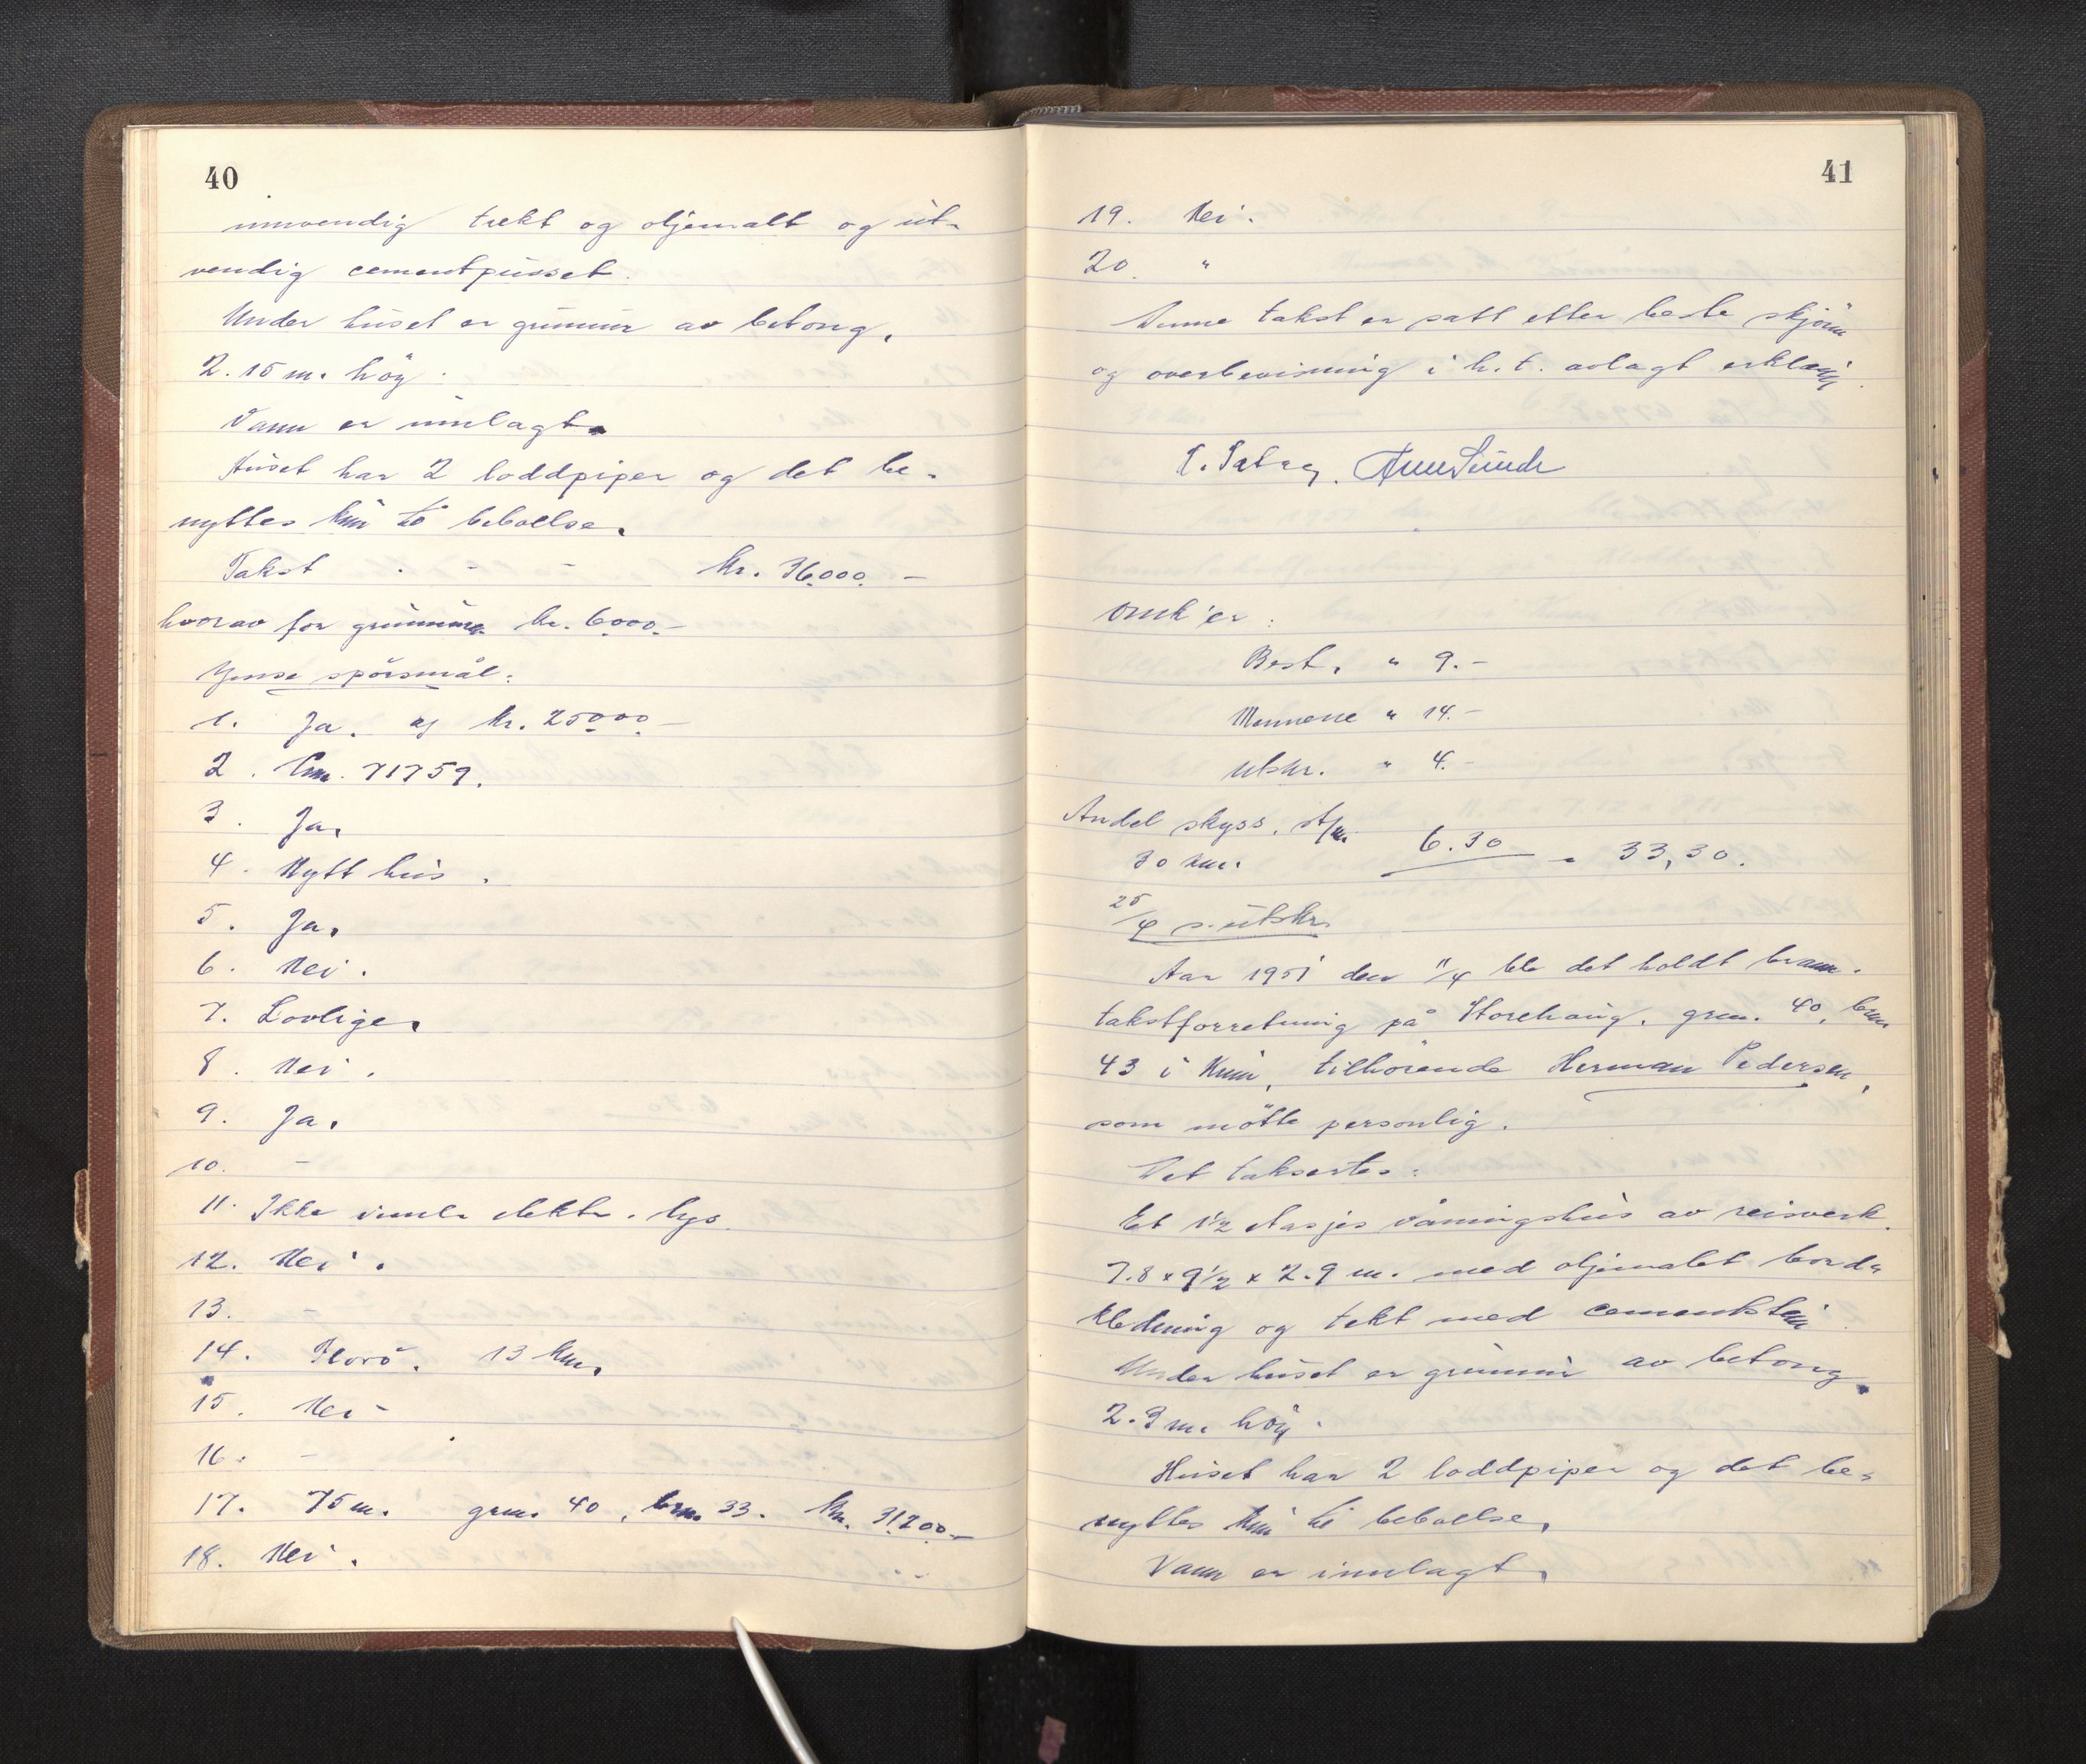 40
innvendig trekt og oljemalt og ut-
vendig cementpusset.
Under huset er grunnur av betong,
2.15 m. höy.
Vann er innlagt.
Huset har 2 loddpiper og det be-
nyttes kun til beboelse.
Takst - - - kr. 36000.-
hvorav for grunnmur kr. 6000.-
Ymse spörsmål:
1. Ja, kr. 25000.-
2. 71759.
3. Ja,
4. Nytt hus.
5. Ja,
6. Nei.
7. Lovlige,
8. Nei.
9. Ja,
10. -
11. Ikke innla elektr. lys.
12. Nei.
13. -
14. Florö. 13 km,
15. Nei -
16. -
17. 75 m. grnr. 40, brnr. 33. kr. 31200.-
18. Nei.
41
19. Nei.
20. "
Denne takst er satt etter beste skjönn
og overbevisning i h.t. avlagt erklæring.
Omk'er:
Best. " 9.-
Mennene " 14.-
Utskr. " 4.-
Andel skyss.
30 km. 6.30 = 33,30.
25/4 s. utskr.
Aar 1951 den 11/4 ble det holdt brann-
takstforretning på Storehaug, grnr. 40, brnr
43 i Kinn, tilhörende Herman Pedersen,
som mötte personlig.
Det taksertes:
Et 1½ etasjes våningshus av reisverk.
7.8 x 9½ x 2.9 m. med oljemalet bord-
kledning og tekt med cementstein
Under huset er grunnur av betong
2.3 m. höy.
Huset har 2 loddpiper og det be-
nyttes kun til beboelse,
Vann er innlagt,